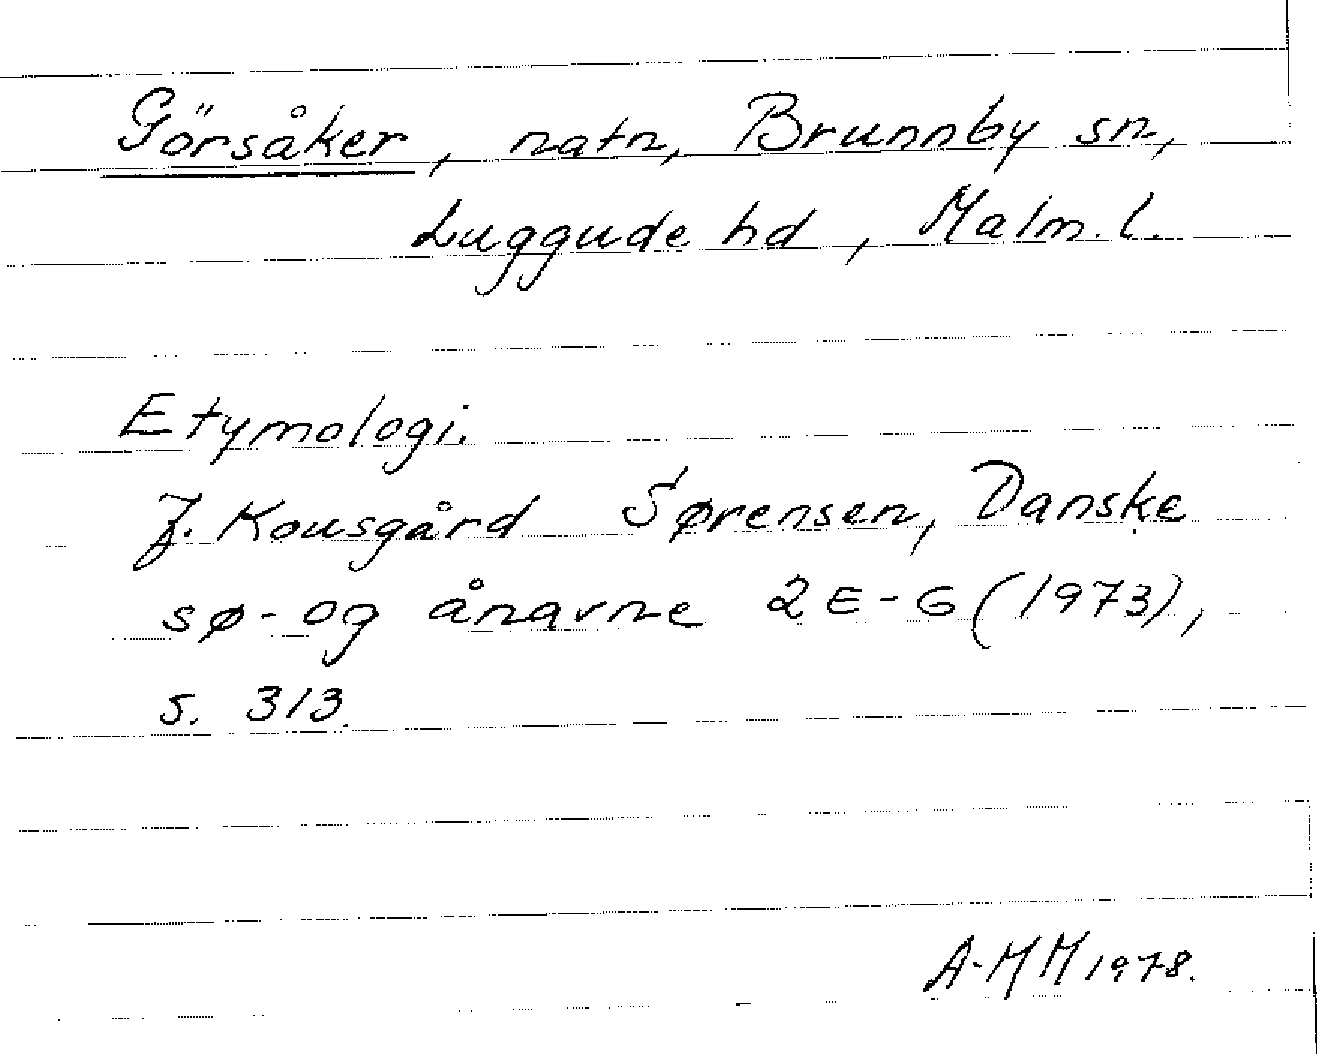 Görsåker, natn, Brunnby sn,
Luggude hd, Malm. l.
Etymologi.
J. Kousgård Sørensen, Danske
sø- og ånavne 2 E-G (1973),
s. 313.
A-MM 1978.